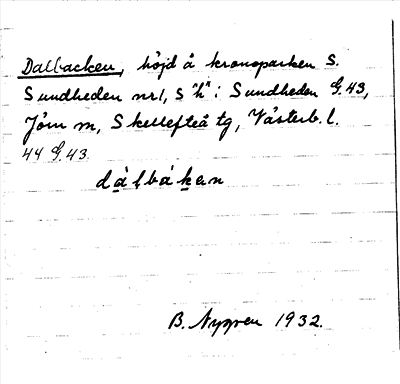 Dalbacken, höjd å kronoparken S.
Sundheden nr 1, S "h" i Sundheden G.43,
Jörn sn, Skellefteå tg, Västerb. l.
44 G.43.
dálbàkan
B. Nygren 1932.